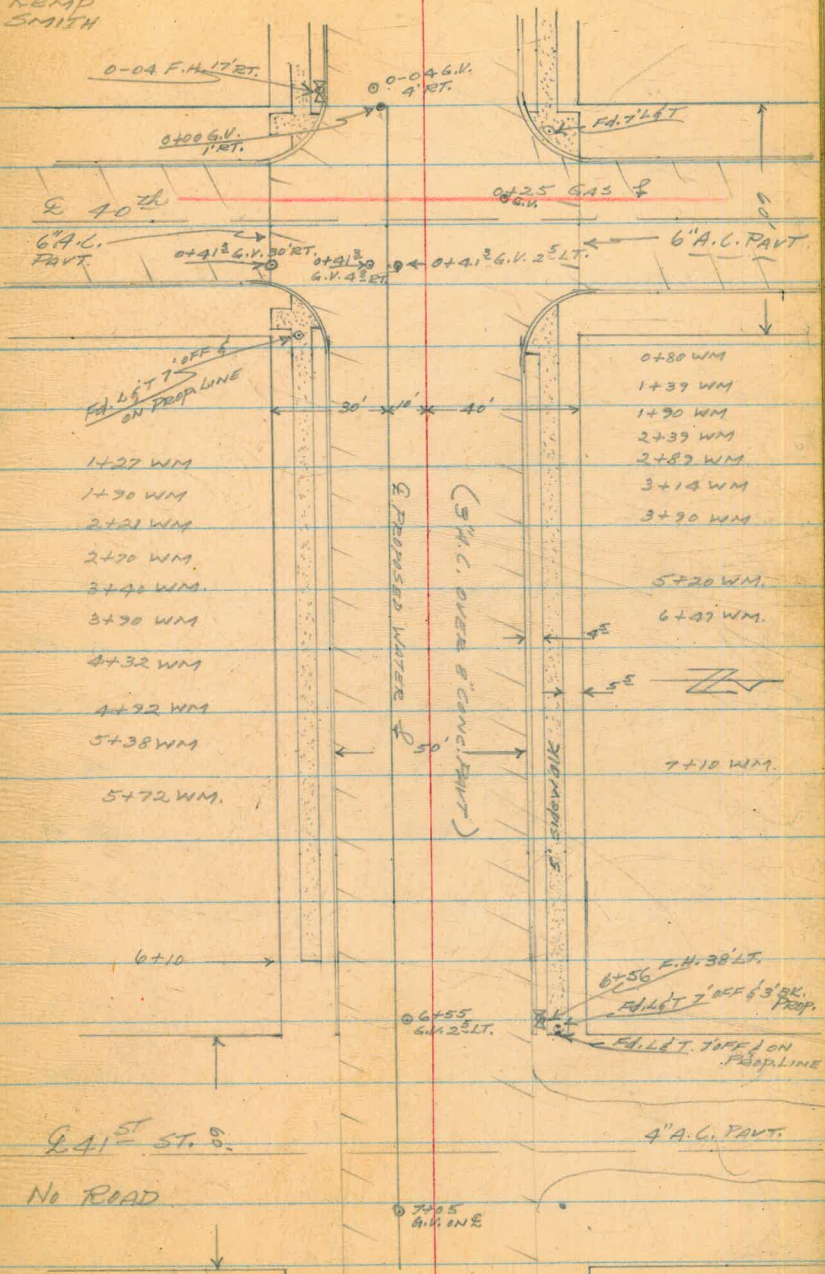 KEMP
SMITH
0-04 F.H. 17' RT.
0-04 G.V.
4' RT.
0+00 G.V.
1' RT.
Fd. 7' L&T
℄ 40th
0+25 GAS ℄
G.V.
60'
6" A.C.
PAVT.
6" A.C. PAVT.
0+41³ G.V. 30' RT.
0+41³
G.V. 4⁸ RT.
0+41³ G.V. 2⁵ LT.
Fd. L&T 7' OFF ℄
ON PROP. LINE
30'
10'
40'
0+80 WM
1+39 WM
1+90 WM
2+39 WM
2+89 WM
3+14 WM
3+90 WM
5+20 WM.
6+47 WM.
7+10 WM.
1+27 WM
1+90 WM
2+21 WM
2+70 WM
3+40 WM.
3+90 WM
4+32 WM
4+92 WM
5+38 WM
5+72 WM.
℄ PROPOSED WATER ℄
(3" A.C. OVER 8" CONC. PAVT)
4⁵
5⁵
50'
5' SIDEWALK
6+10
6+56 F.H. 38' LT.
Fd. L&T 7' OFF ℄ 3' BK.
PROP.
Fd. L&T. 7' OFF ℄ ON
PROP. LINE
6+55
G.V. 2⁵ LT.
℄ 41ST ST.
60'
4" A.C. PAVT.
NO ROAD
7+05
G.V. ON ℄